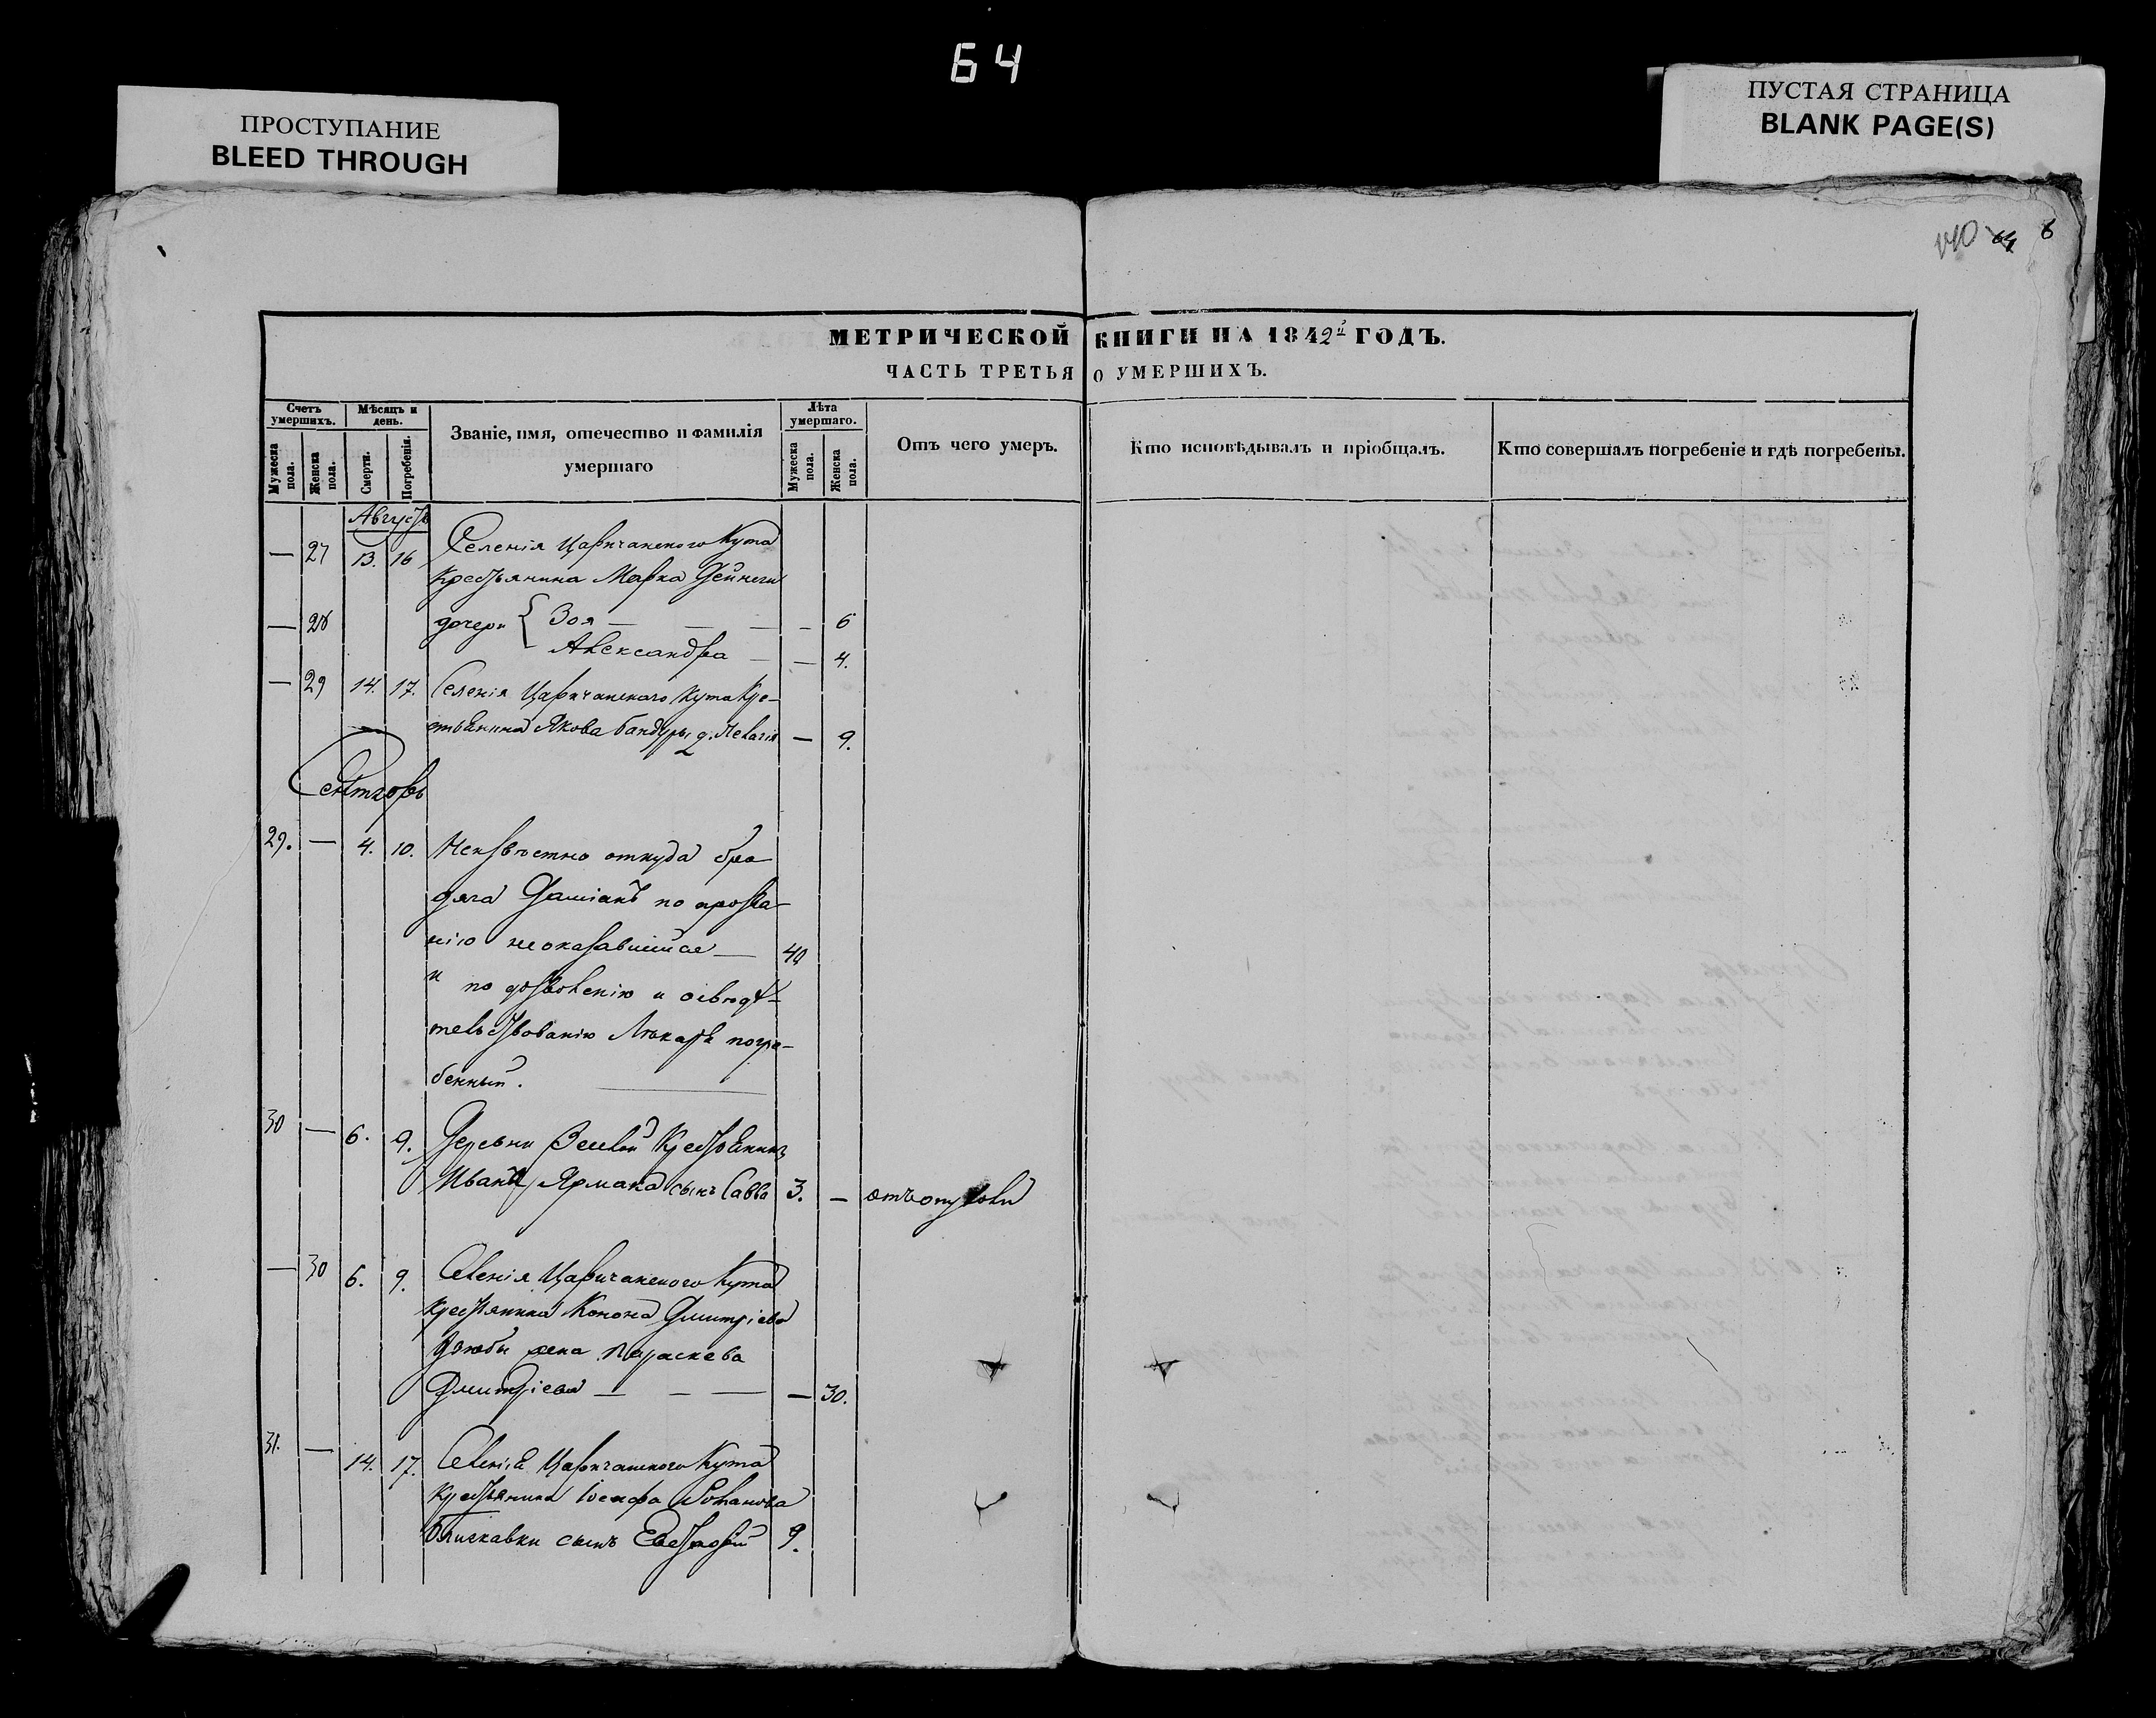 64
ПРОСТУПАНИЕ
BLEED THROUGH
ПУСТАЯ СТРАНИЦА
BLANK PAGE(S)
64
МЕТРИЧЕСКОЙ КНИГИ НА 1842й ГОДЪ.
ЧАСТЬ ТРЕТЬЯ О УМЕРШИХЪ.
Счетъ умершихъ.
Мужеска пола.
Женска пола.
Мѣсяцъ и день.
Смерти.
Погребенія.
Званіе, имя, отечество и фамилія умершаго
Лѣта умершаго.
Мужеска пола.
Женска пола.
Отъ чего умеръ.
Кто исповѣдывалъ и пріобщалъ.
Кто совершалъ погребеніе и гдѣ погребены.
Августъ
— 27 13. 16 Селенія Царичанского Кута
Крестьянина Марка Дейнеги
— 28 дочери { Зоя — — — — 6
Александра — — 4.
— 29 14. 17. Селенія Царичанского Кута Кре-
стьянина Якова Бандуры д. Пелагія — 9.
Сентябрь
29. — 4. 10. Неизвѣстно откуда бро
дяга Даміанъ по прозва-
нію неоказавшийся — 40
и по дозволенію и освидѣ-
тельствованію Лѣкаря погре-
бенный.
30 — 6. 9. Деревни Крестьянина
Ивана Ярмака сынъ Савва 3. —
— 30 6. 9. Селенія Царичанского Кута
Крестьянина Конона Дмитріева
Дзюбы жена Параскева
Дмитріева — — — — 30.
31. — 14. 17. Селенія Царичанского Кута
Крестьянина Іосифа
сынъ 9.